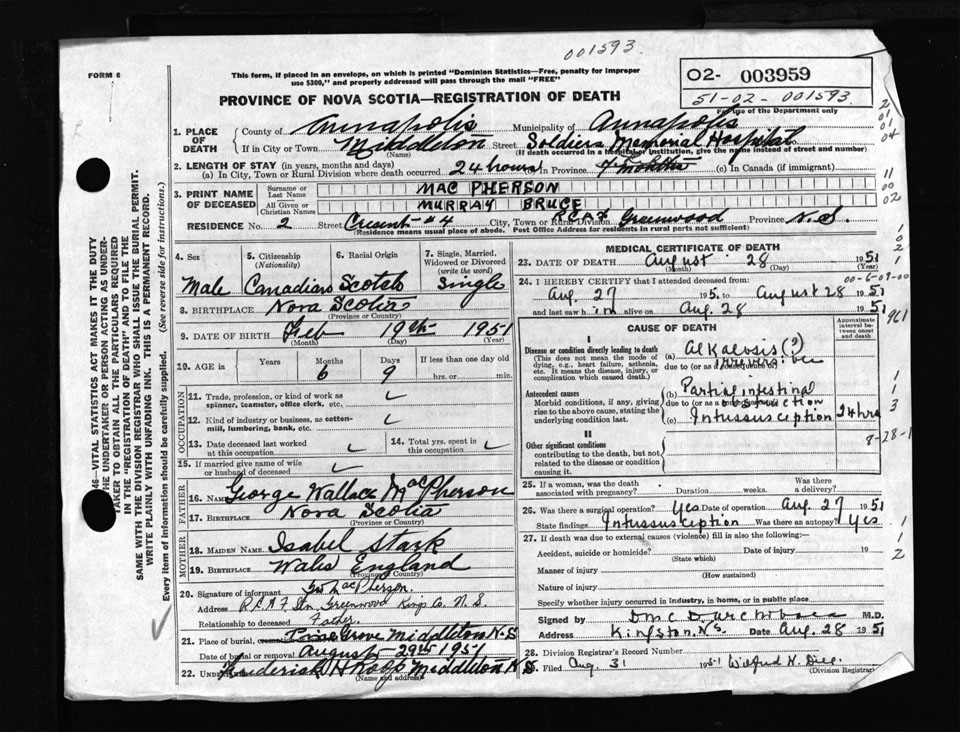 001593.
FORM 6
This form, if placed in an envelope, on which is printed "Dominion Statistics—Free, penalty for improper
use $300," and properly addressed will pass through the mail "FREE"
O2- 003959
51-02-001593.
use of the Department only
PROVINCE OF NOVA SCOTIA—REGISTRATION OF DEATH
1. PLACE OF DEATH
County of Annapolis Municipality of Annapolis
If in City or Town Middleton Street Soldiers Memorial Hospital No.
(Name) (If death occurred in a Hospital or institution, give the name instead of street and number)
2. LENGTH OF STAY (in years, months and days)
(a) In City, Town or Rural Division where death occurred 24 hours In Province 4 months (c) In Canada (if immigrant)
3. PRINT NAME OF DECEASED
Surname or Last Name MAC PHERSON
Given or Christian Names MURRAY BRUCE
RESIDENCE No. 2 Street Cresent #4 City, Town or Rural Division RCAF Greenwood Province N.S.
(Residence means usual place of abode. Post Office Address for residents in rural parts not sufficient)
4. Sex Male
5. Citizenship (Nationality) Canadian
6. Racial Origin Scotch
7. Single, Married, Widowed or Divorced (write the word) Single
8. BIRTHPLACE Nova Scotia
(Province or Country)
9. DATE OF BIRTH Feb 19th 1951
(Month) (Day) (Year)
10. AGE in Years Months 6 Days 9 If less than one day old
hrs. or min.
OCCUPATION
11. Trade, profession, or kind of work as spinner, teamster, office clerk, etc.
12. Kind of industry or business, as cotton-mill, lumbering, bank, etc.
13. Date deceased last worked at this occupation
14. Total yrs. spent in this occupation
15. If married give name of wife or husband of deceased
FATHER
16. Name George Wallace MacPherson
17. BIRTHPLACE Nova Scotia
(Province or Country)
MOTHER
18. MAIDEN NAME Isabel Stark
19. BIRTHPLACE Wales England
(Province or Country)
20. Signature of informant MacPherson.
Address R.C.A.F. Stn. Greenwood Kings Co. N.S.
Relationship to deceased Father.
21. Place of burial, Pine Grove Middleton N.S
Date of burial or removal August 29th 1951
22. Frederick H Roop Middleton N S
(Name and address)
MEDICAL CERTIFICATE OF DEATH
23. DATE OF DEATH August 28 1951
(Month) (Day) (Year)
24. I HEREBY CERTIFY that I attended deceased from:
00-6-09-00
Aug. 27 195. to August 28 1951
and last saw him alive on Aug. 28 1951
961
CAUSE OF DEATH
Approximate interval between onset and death
I
Disease or condition directly leading to death
(This does not mean the mode of dying, e.g., heart failure, asthma, etc. It means the disease, injury, or complication which caused death.)
(a) Alkalosis (?) irreversible
due to (or as a consequence of)
Antecedent causes
Morbid conditions, if any, giving rise to the above cause, stating the underlying condition last.
(b) Partial intestinal obstruction
due to (or as a consequence of)
(c) Intussusception 24 hrs
8-28-1
II
Other significant conditions
contributing to the death, but not related to the disease or condition causing it.
25. If a woman, was the death associated with pregnancy? Duration weeks. Was there a delivery?
26. Was there a surgical operation? Yes Date of operation Aug. 27 1951
State findings Intussusception Was there an autopsy? Yes
27. If death was due to external causes (violence) fill in also the following:—
Accident, suicide or homicide? Date of injury 19
(State which)
Manner of injury
(How sustained)
Nature of injury
Specify whether injury occurred in industry, in home, or in public place
Signed by M.D.
Address Kingston, N.S. Date Aug. 28 1951
28. Division Registrar's Record Number
Filed Aug. 31 1951 Wilfred H.
(Division Registrar)
46—VITAL STATISTICS ACT MAKES IT THE DUTY
THE UNDERTAKER OR PERSON ACTING AS UNDER-
TAKER TO OBTAIN ALL THE PARTICULARS REQUIRED
IN THE "REGISTRATION OF DEATH" AND TO FILE THE
SAME WITH THE DIVISION REGISTRAR WHO SHALL ISSUE THE BURIAL PERMIT.
WRITE PLAINLY WITH UNFADING INK. THIS IS A PERMANENT RECORD.
Every item of information should be carefully supplied. (See reverse side for instructions.)